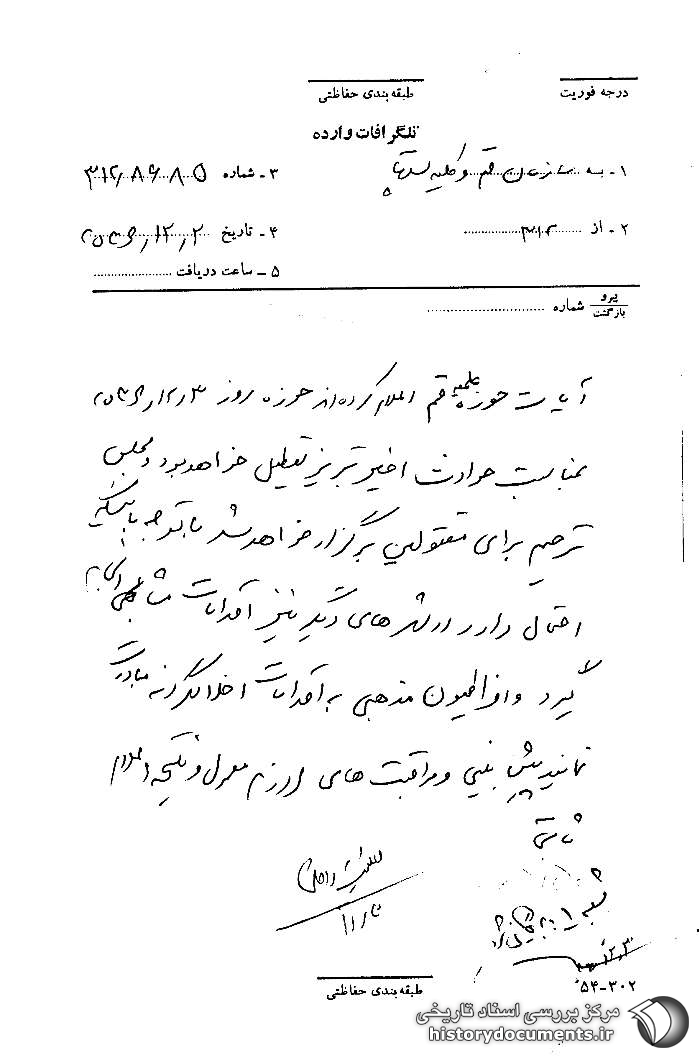 درجه فوریت
طبقه‌بندی حفاظتی
تلگرافات وارده
۱- به سازمان قم و کلیه استانها
۳- شماره ۳۱۲/۸۶۸۵
۲- از ۳۱۲
۴- تاریخ ۲۵۳۶/۱۲/۲
۵- ساعت دریافت
پیرو بازگشت شماره
آیات حوزه علمیه قم اعلام کرده‌اند حوزه روز ۲۵۳۶/۱۲/۳
بمناسبت حوادث اخیر تبریز تعطیل خواهد بود و مجلس
ترحیم برای مقتولین برگزار خواهد شد با توجه باینکه
احتمال دارد در شهرهای دیگر نیز اقدامات مشابهی انجام
گیرد و افراطیون مذهبی به اقدامات اخلالگرانه مبادرت
نمایند پیش بینی و مراقبت های لازم معمول و نتیجه اعلام
ثابتی
طبقه‌بندی حفاظتی
۵۴-۳۰۲
مرکز بررسی اسناد تاریخی
historydocuments.ir